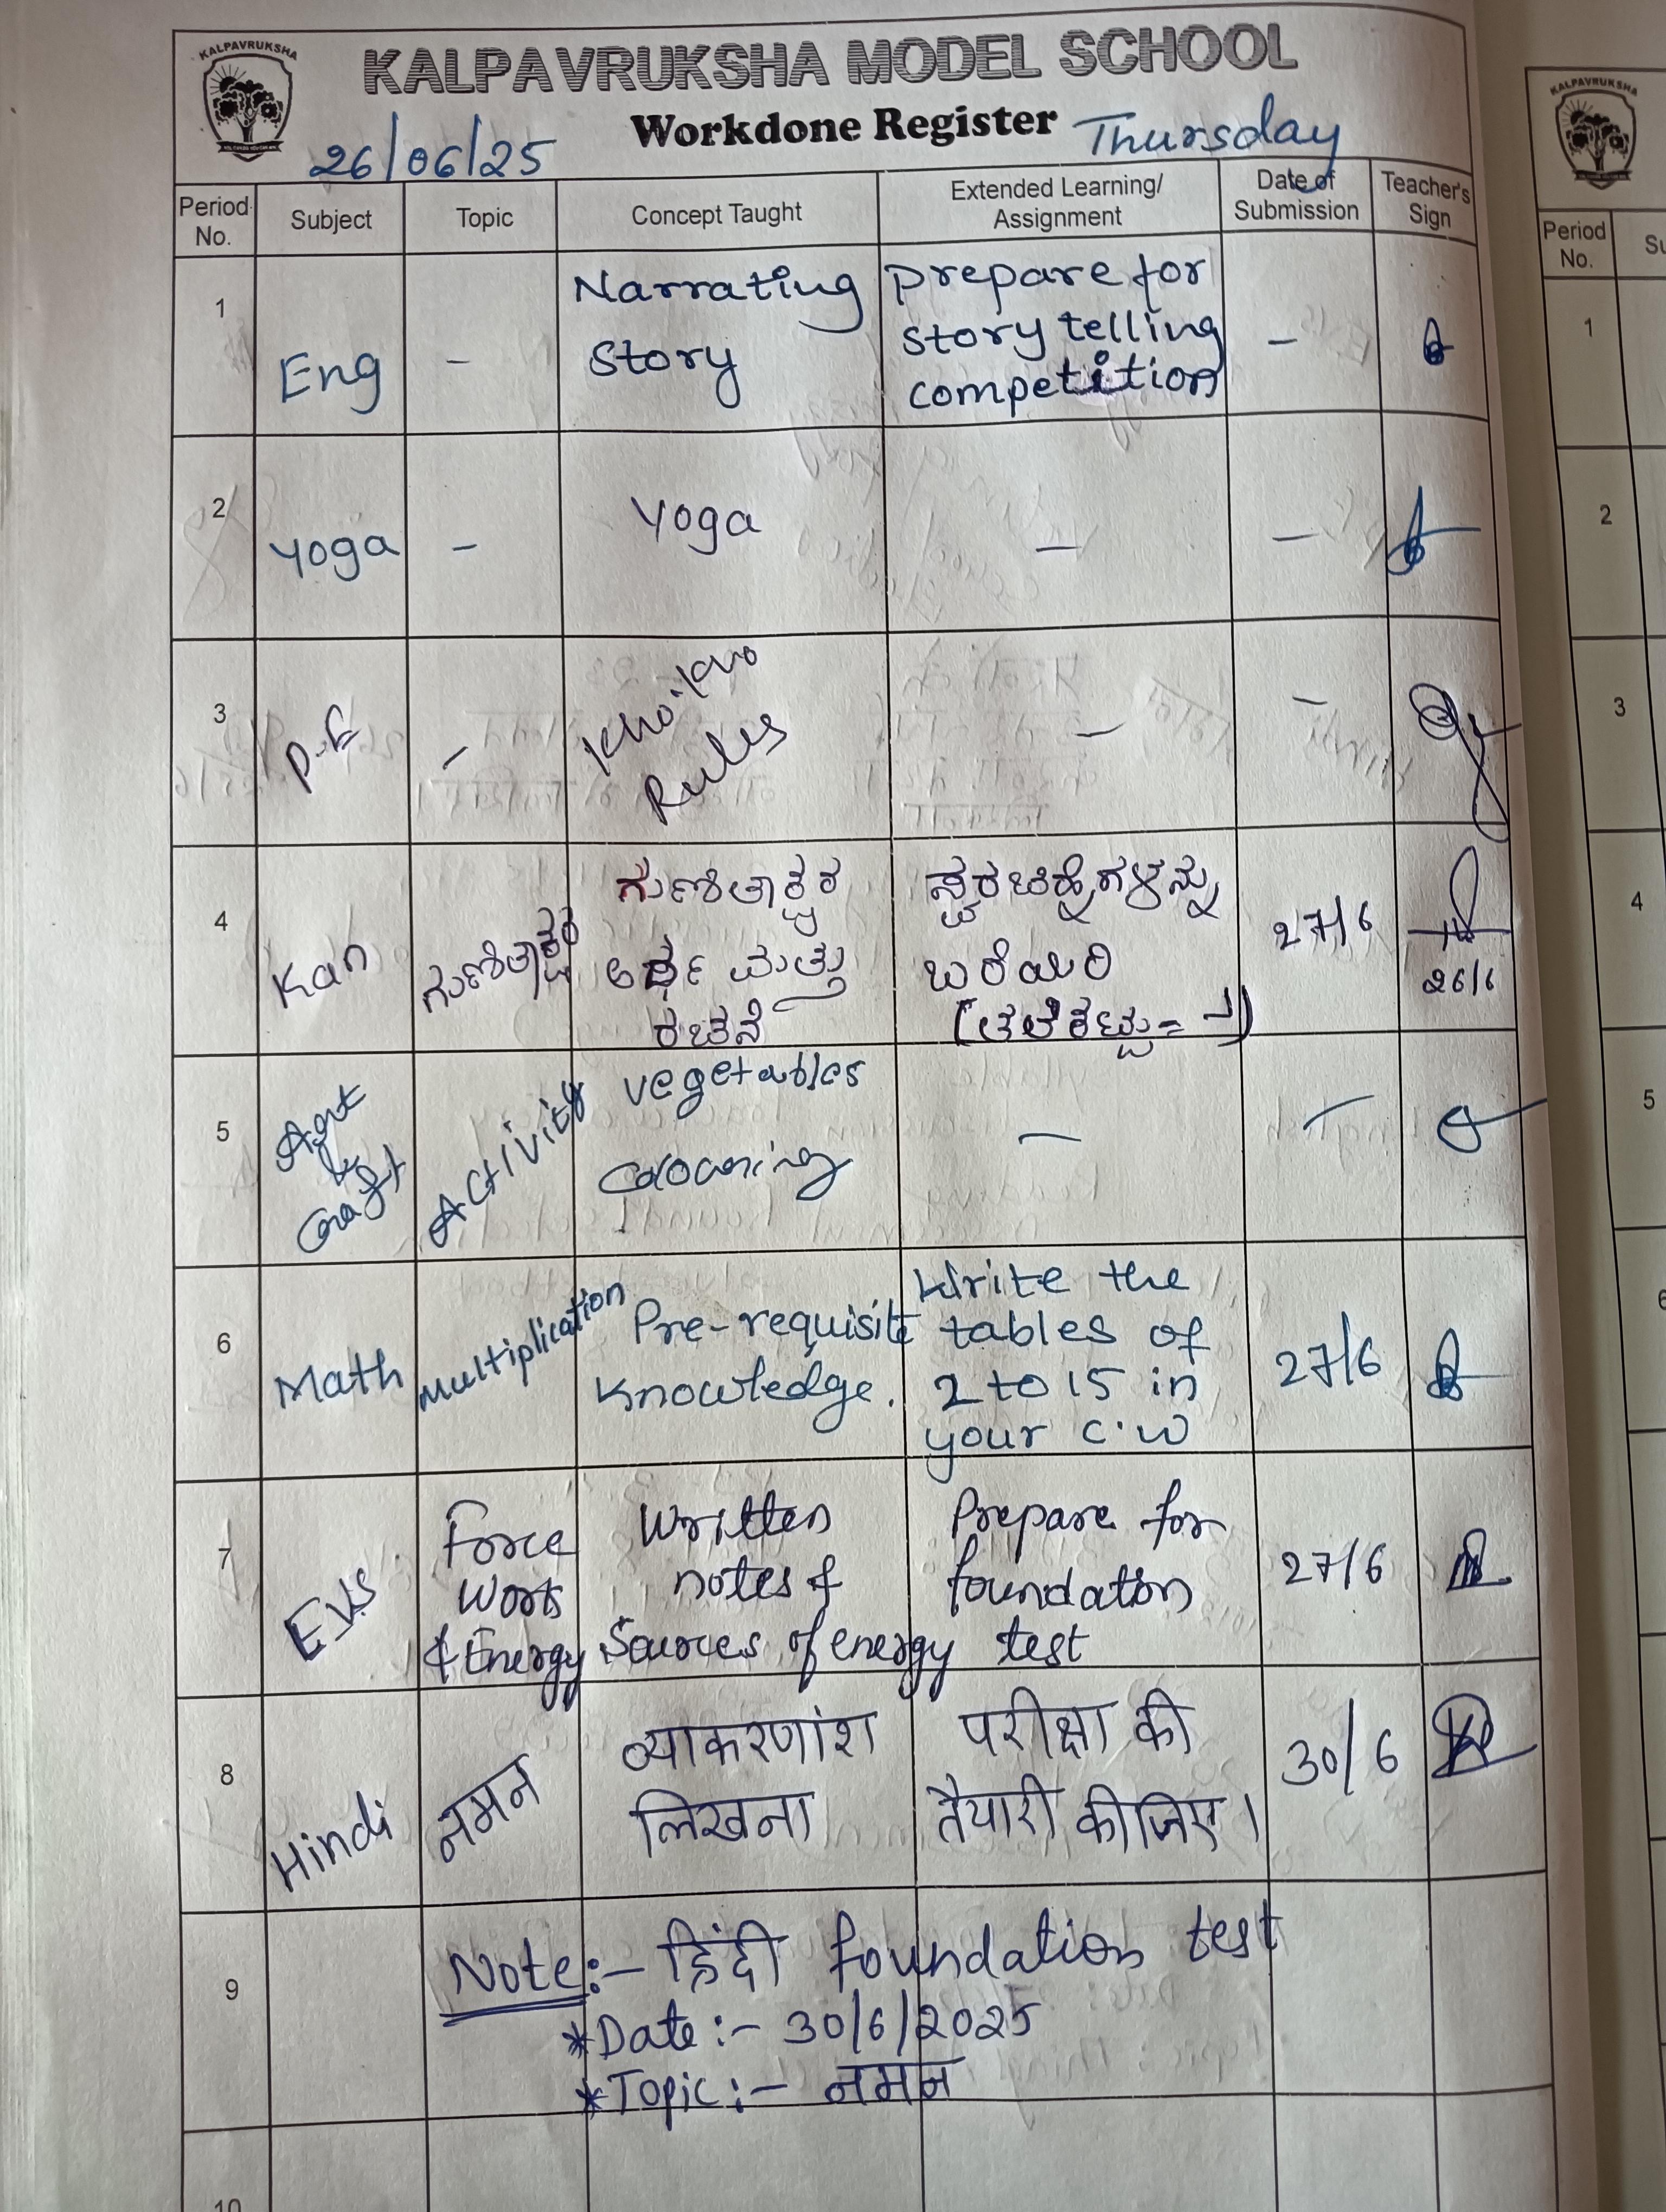 KALPAVRUKSHA
KALPAVRUKSHA MODEL SCHOOL
Workdone Register
26/06/25
Thursday
Period No. Subject Topic Concept Taught Extended Learning/ Assignment Date of Submission Teacher's Sign
1 Eng - Narrating story prepare for story telling competition -
2 Yoga - Yoga - -
3 P.E - Kho-kho Rules - -
4 Kan ಗುಣಿತಾಕ್ಷರ ಗುಣಿತಾಕ್ಷರ ಅರ್ಥ ಮತ್ತು ರಚನೆ ಸ್ವರಚಿಹ್ನೆಗಳನ್ನು ಬರೆಯಿರಿ (ತಲೆಕಟ್ಟು = ) 27/6 26/6
5 Art & Craft Activity vegetables - -
6 Math Multiplication Pre-requisite Knowledge. Write the tables of 2 to 15 in your c.w 27/6
7 EVS Force Work & Energy Written notes of Sources of energy Prepare for foundation test 27/6
8 Hindi नमन व्याकरणांश लिखना परीक्षा की तैयारी कीजिए। 30/6
9 Note:- हिंदी foundation test
*Date:- 30/6/2025
*Topic:- नमन
10
KALPAVRUKSHA
Period No. Su
1
2
3
4
5
6